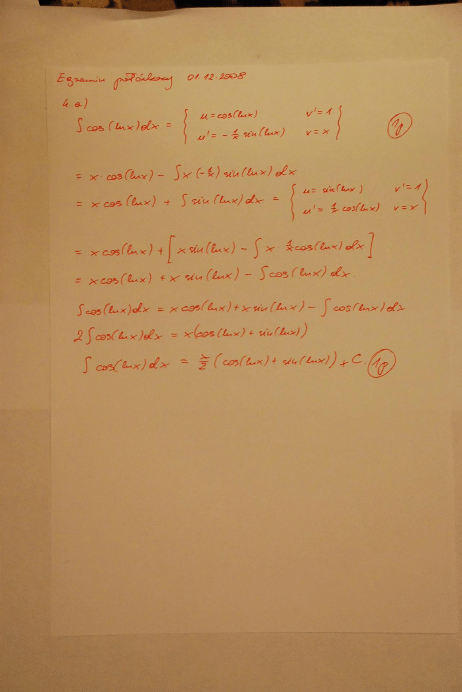 Egzamin połówkowy 01.12.2008
4. a)
∫cos(lnx)dx = { u = cos(lnx) v' = 1
u' = -1/x sin(lnx) v = x } 1p
= x·cos(lnx) - ∫x(-1/x) sin(lnx)dx
= x cos(lnx) + ∫sin(lnx)dx = { u = sin(lnx) v' = 1
u' = 1/x cos(lnx) v = x }
= x cos(lnx) + [x sin(lnx) - ∫x·1/x cos(lnx)dx]
= x cos(lnx) + x sin(lnx) - ∫cos(lnx)dx.
∫cos(lnx)dx = x cos(lnx) + x sin(lnx) - ∫cos(lnx)dx
2∫cos(lnx)dx = x(cos(lnx) + sin(lnx))
∫cos(lnx)dx = x/2 (cos(lnx) + sin(lnx)) + C. 1p